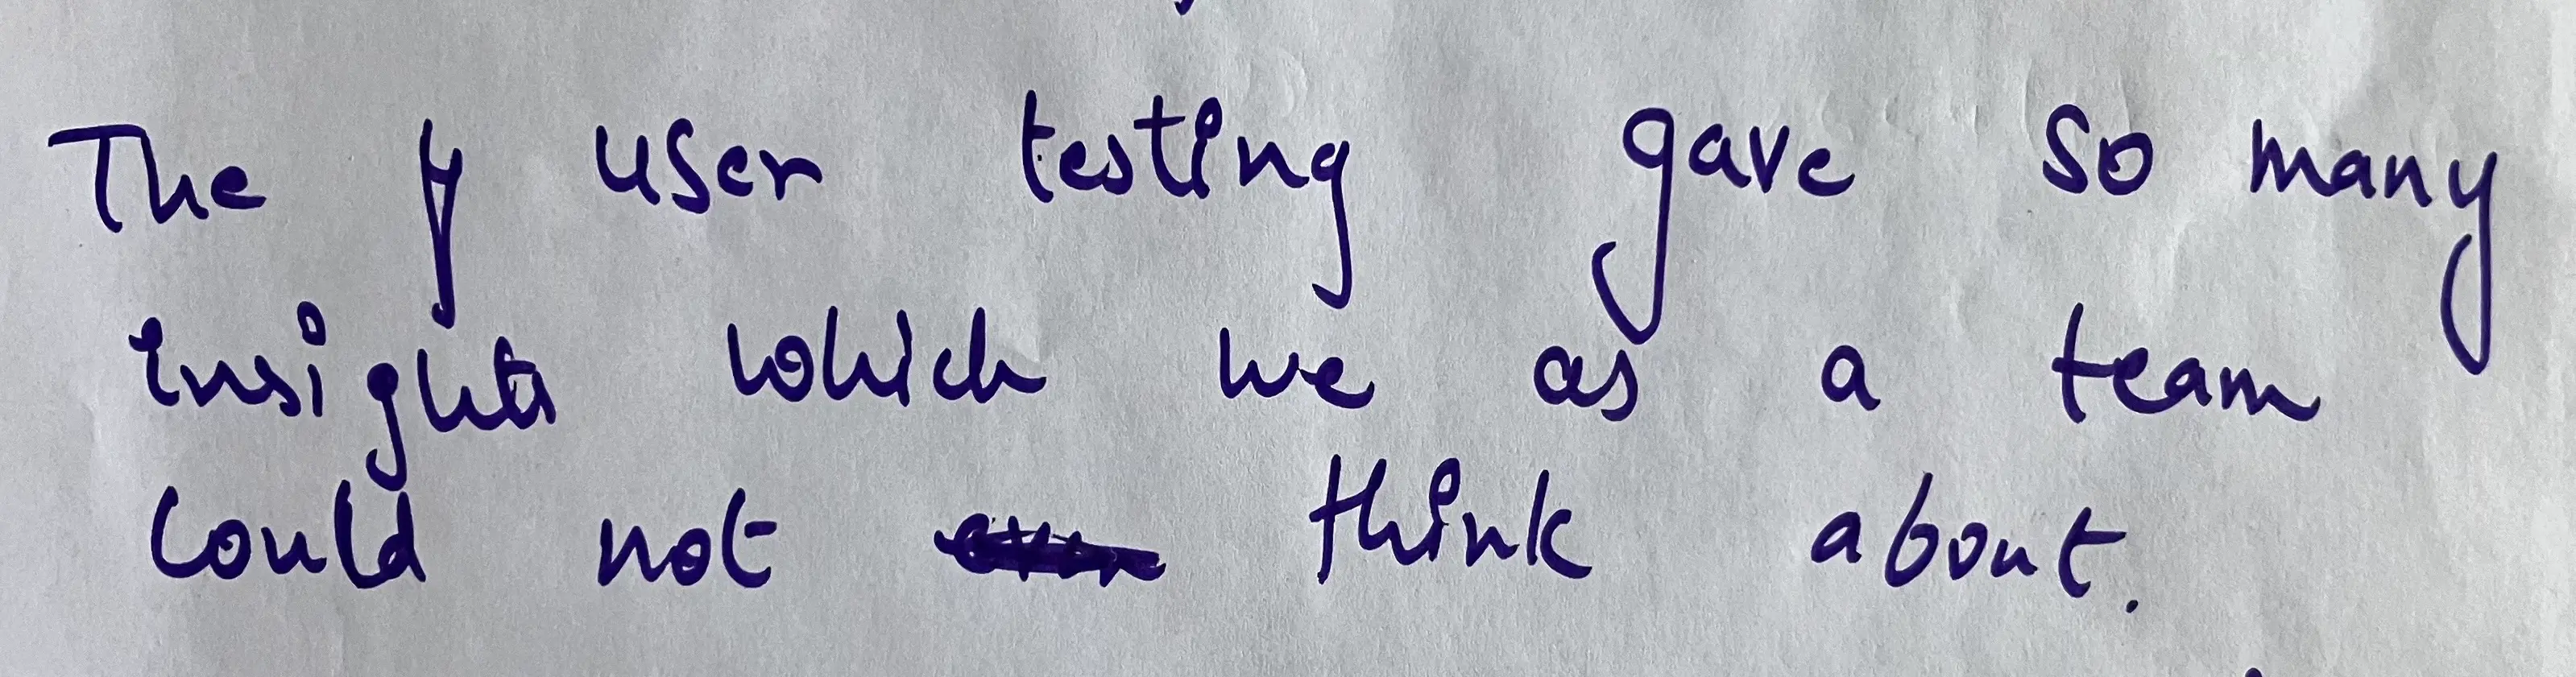 The y user testing gave so many
insights which we as a team
could not think about.